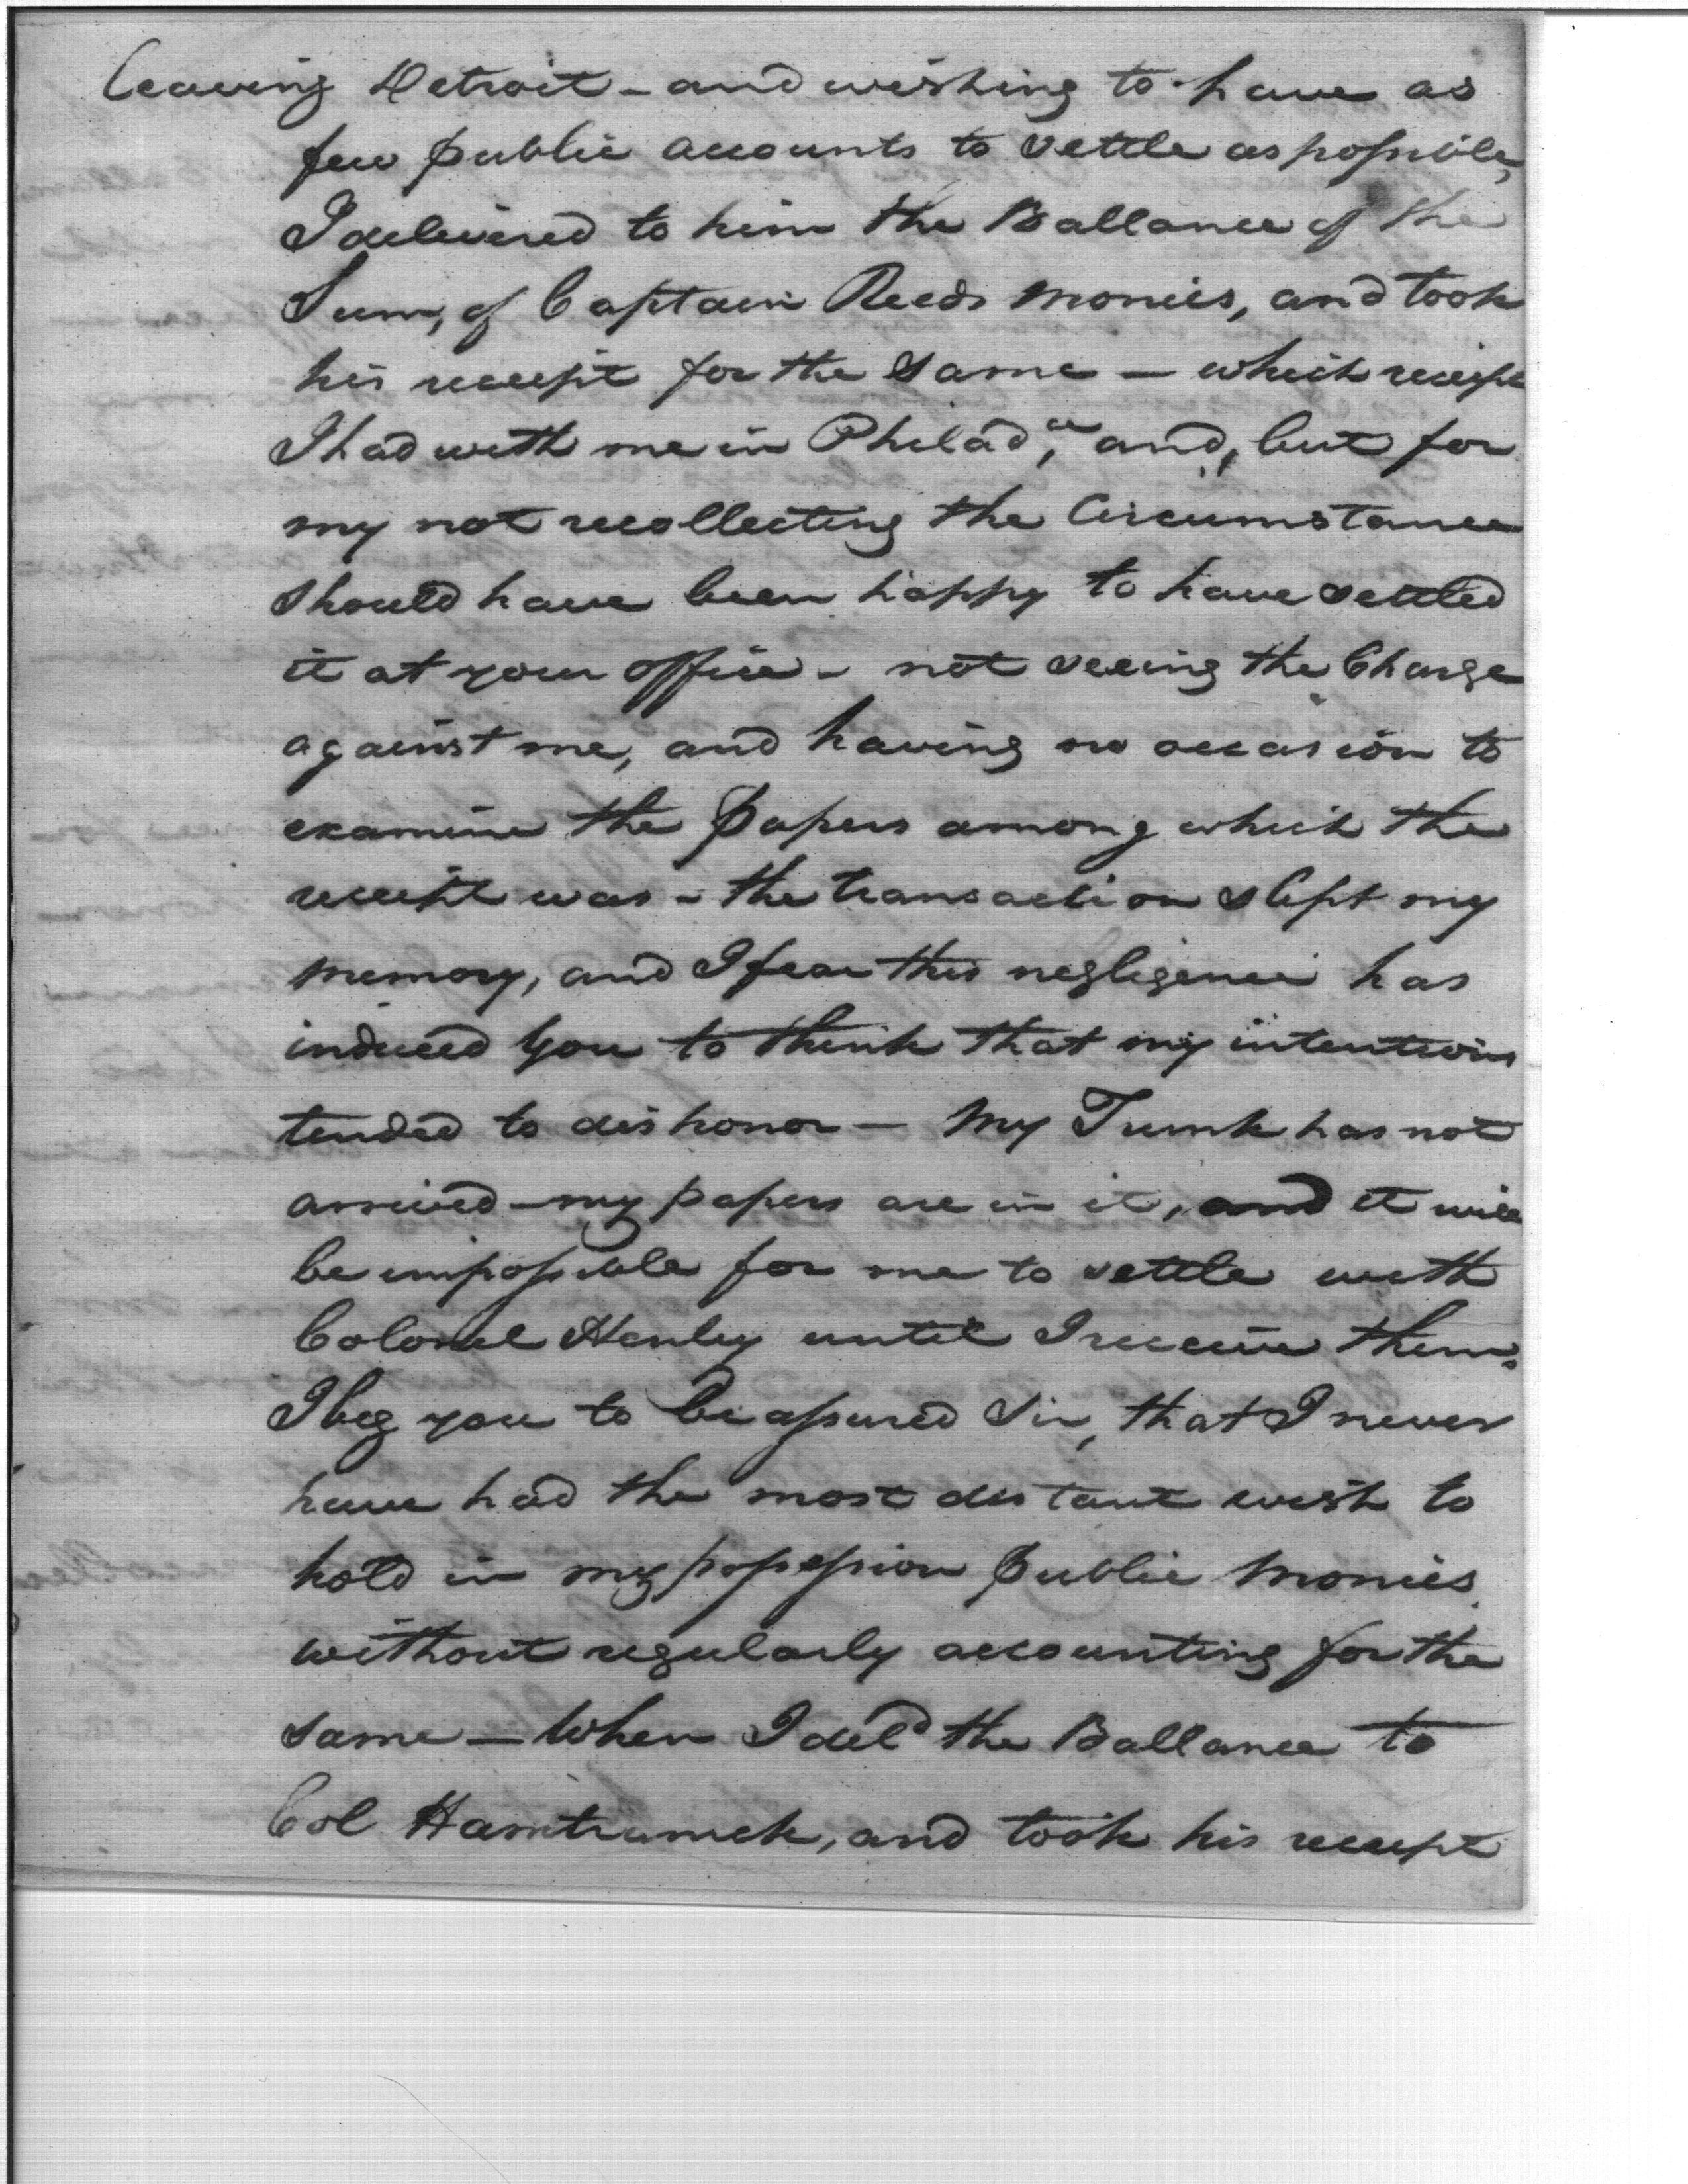 leaving Detroit - and wishing to have as
few public accounts to settle as possible,
I delivered to him the Ballance of the
Sum, of Captain Reeds monies, and took
his receipt for the same — which receipt
I had with me in Philada, and, but for
my not recollecting the Circumstance
should have been happy to have settled
it at your office - not seeing the Charge
against me, and having no occasion to
examine the Papers among which the
receipt was - the transaction slipt my
memory, and I fear this negligence has
induced you to think that my intentions
tended to dishonor — My Trunk has not
arrived - my papers are in it, and it will
be impossible for me to settle with
Colonel Henley until I receive them.
I beg you to be assured Sir, that I never
have had the most distant wish to
hold in my possession Public Monies
without regularly accounting for the
same — When I deld the Ballance to
Col Hamtramck, and took his receipt